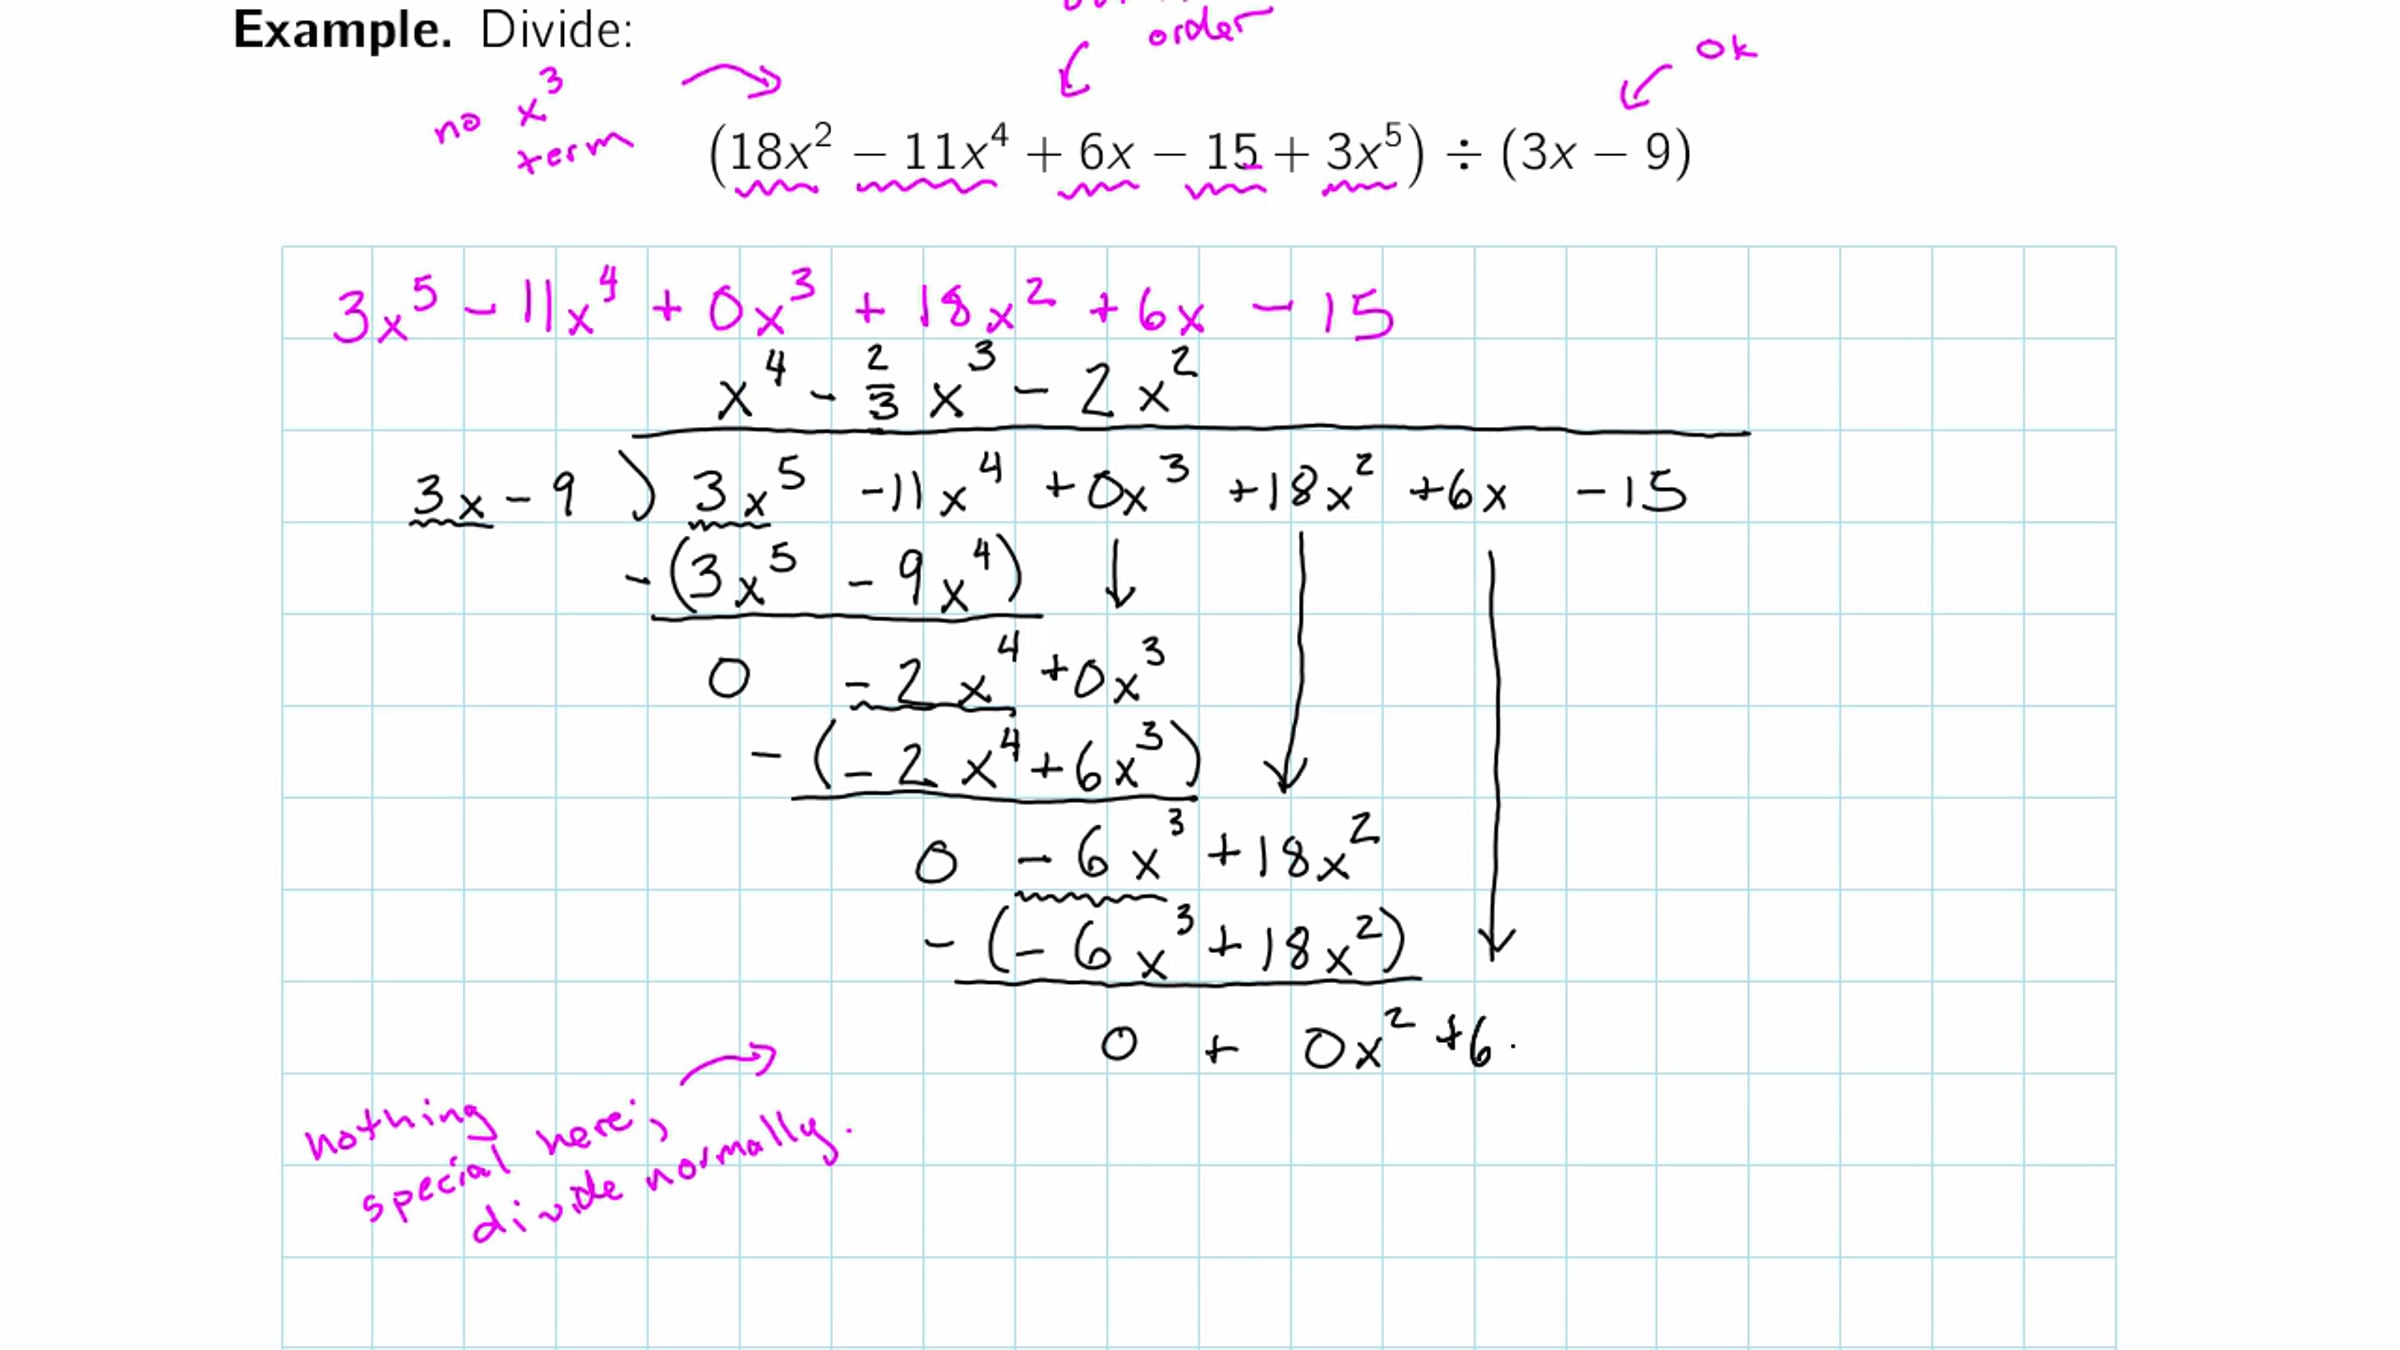 order
Example. Divide:
ok
no x³
term
(18x² − 11x⁴ + 6x − 15 + 3x⁵) ÷ (3x − 9)
3x⁵ - 11x⁴ + 0x³ + 18x² + 6x - 15
x⁴ - 2/3 x³ - 2x²
3x - 9 ) 3x⁵ -11x⁴ +0x³ +18x² +6x -15
-(3x⁵ - 9x⁴)
0 -2x⁴ +0x³
-(-2x⁴ +6x³)
0 -6x³ +18x²
-(-6x³ +18x²)
0 + 0x² +6
nothing
special here;
divide normally.